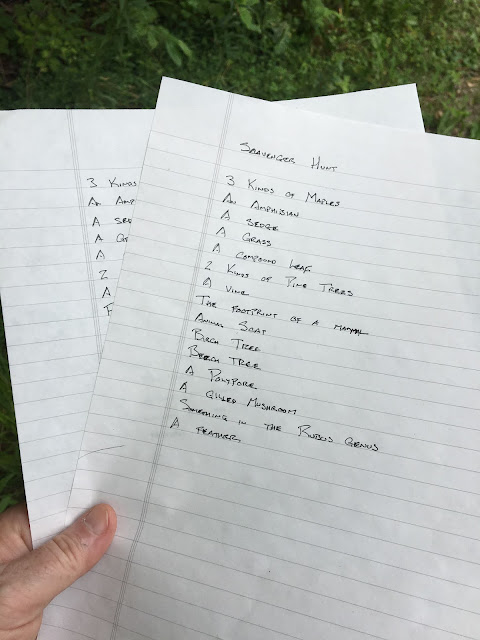 Scavenger Hunt
3 Kinds of Maples
An Amphibian
A Sedge
A Grass
A Compound Leaf
2 Kinds of Pine Trees
A Vine
The Footprint of a Mammal
Animal Scat
Birch Tree
Beech Tree
A Polypore
A Gilled Mushroom
Something in the Rubus Genus
A Feather
3 Kinds
An Amp
A Sed
A G
A
2
A